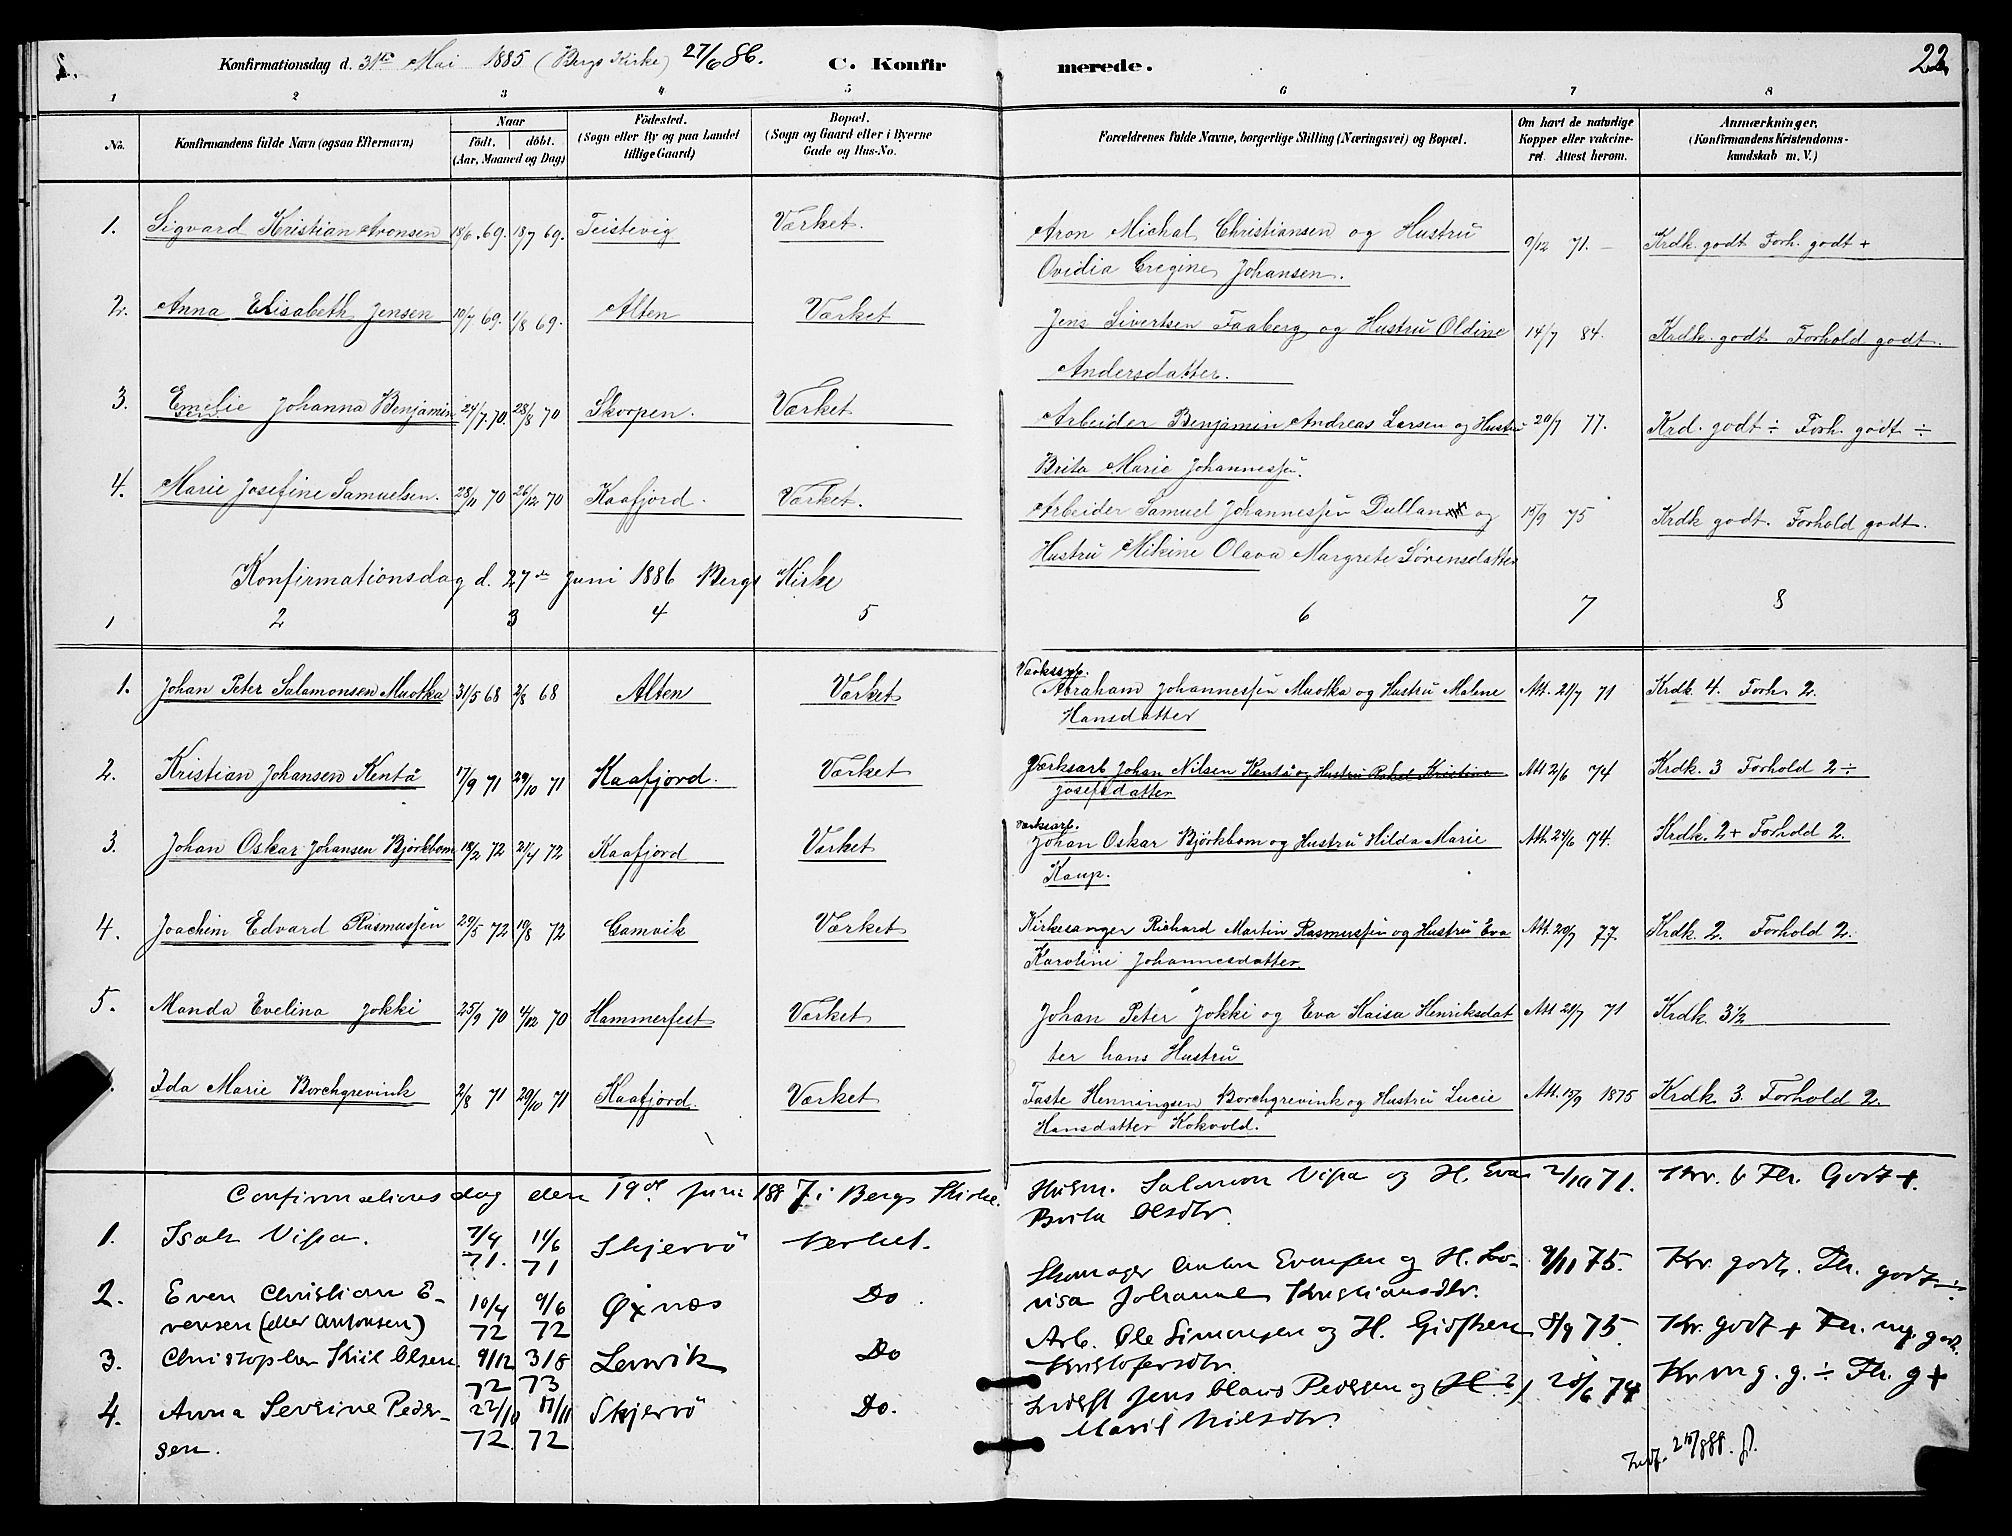 Konfirmationsdag d. 31te Mai 1885 (Bergs Kirke) 27/6 86. C. Konfirmerede. 22
1 2 3 4 5 6 7 8
No. Konfirmandens fulde Navn (ogsaa Efternavn) Naar født. døbt. (Aar, Maaned og Dag) Fødested. (Sogn eller By og paa Landet tillige Gaard) Bopæl. (Sogn og Gaard eller i Byerne Gade og Hus-No. Forældrenes fulde Navne, borgerlige Stilling (Næringsvei) og Bopæl. Om havt de naturlige Kopper eller vakcineret. Attest herom. Anmærkninger. (Konfirmandens Kristendomskundskab m. V.)
1. Sigvard Kristian Aronsen 18/6 69. 18/7 69. Teistevig Værket. Aron Michal Christiansen og Hustru 9/12 71. – Krdk. godt Forh. godt +
Ovidia Cregine Johansen.
2. Anna Elisabeth Jensen 10/7 69. 1/8 69. Alten Værket Jens Sivertsen Faaberg og Hustru Oldine 14/7 84. Krdk. godt Forhold godt.
Andersdatter.
3. Emelie Johanna Benjaminsen 24/7 70. 28/8 70 Skorpen. Værket Arbeider Benjamin Andreas Larsen og Hustru 20/7 77. Krd. godt ÷ Forh. godt ÷
Brita Marie Johannessen.
4. Marie Josefine Samuelsen. 28/11 70 26/12 70 Kaafjord. Værket. Arbeider Samuel Johannessen Dullan og 15/9 75 Krdk godt. Forhold godt.
Hustru Mikine Olava Margrete Sørensdatter
Konfirmationsdag d. 27de Juni 1886 Bergs Kirke
1 2 3 4 5 6 7 8
1. Johan Peter Salamonsen Muotka 31/5 68 2/8 68 Alten Værket Abraham Johannessen Muotka og Hustru Malene Att. 21/7 71 Krdk 4. Forh. 2.
Hansdatter
2. Kristian Johansen Kentä 17/9 71 29/10 71 Kaafjord. Værket Værksarb Johan Nilsen Kentä og Hustru Rakel Kristine Att 2/6 74 Krdk. 3 Forhold 2 ÷
Josefsdatter
3. Johan Oskar Johansen Björkbom 18/2 72 21/4 72 Kaafjord Værket Værksarb. Johan Oskar Björkbom og Hustru Hilda Marie Att. 24/6 74. Krdk. 2+ Forhold 2.
Kaup.
4. Joachim Edvard Rasmussen 29/5 72 19/8 72 Gamvik Værket Kirkesanger Richard Martin Rasmussen og Hustru Eva Att. 20/7 77. Krdk. 2. Forhold 2.
Karoline Johannesdatter.
5. Manda Evelina Jokki 25/9 70 4/12 70 Hammerfest Værket Johan Peter Jokki og Eva Kaisa Henriksdat Att 21/7 71 Krdk. 3½
ter hans Hustru
Ida Marie Borchgrevink 2/8 71 29/10 71 Kaafjord. Værket Faste Henningsen Borchgrevink og Hustru Lucie Att. 15/9 1875 Krdk. 3. Forhold 2.
Hansdatter Kokvold.
Confirmationsdag den 19de Juni 1887 i Bergs Kirke.
1. Isak Vissa. 7/4 71. 11/6 71 Skjervö Verket. Salamon Vissa og H. Eva 2/10 71. Godt +.
Brita Olsdtr.
2. Even Christian Evensen (eller Antonsen) 10/4 72 9/6 72 Øxnæs Do Skomager Anton Evensen og H. Lovisa Johanne Kristiansdtr. 9/11 75. Kr. godt. Fh. godt ÷
3. Christopher Kiil Olsen 9/12 72 3/8 73 Lenvik Do Arb. Ole Simonsen og H. 8/9 75. Kr. godt + Fh. mg. godt.
Kristofersdtr.
4. Anna Severine Pedersen. 22/10 72 17/11 72 Skjervö Do. Jens Claus Pedersen og (H. ?) 25/6 74 Kr mg. g. ÷ Fh. g +
Marit Nilsdtr.
Indf.